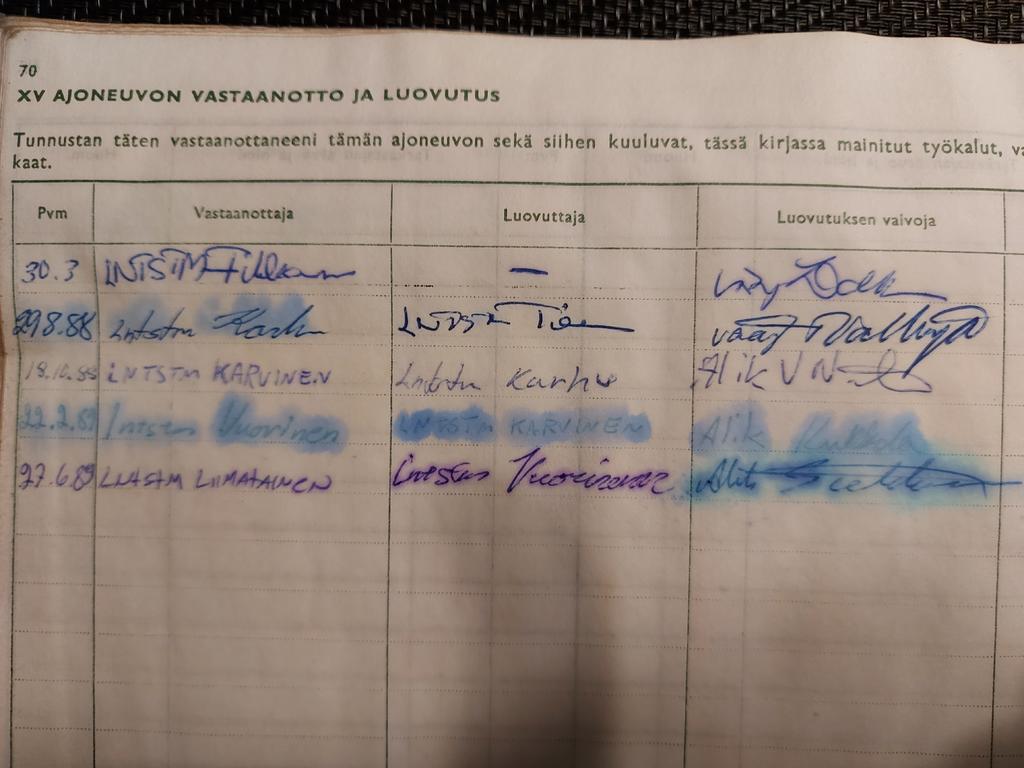 70
XV AJONEUVON VASTAANOTTO JA LUOVUTUS
Tunnustan täten vastaanottaneeni tämän ajoneuvon sekä siihen kuuluvat, tässä kirjassa mainitut työkalut,
kaat.
Pvm Vastaanottaja Luovuttaja Luovutuksen valvoja
30.3 LNTSTM —
29.8.88 Lntstm Karhu LNTSTM
18.10.88 LNTSTM KARVINEN Lntstm Karhu Alik
22.2.89 Lntstm Vuorinen LNTSTM KARVINEN Alik Kukkola
27.6.89 LNTSTM LIIMATAINEN Lntstm Vuorinen Alik